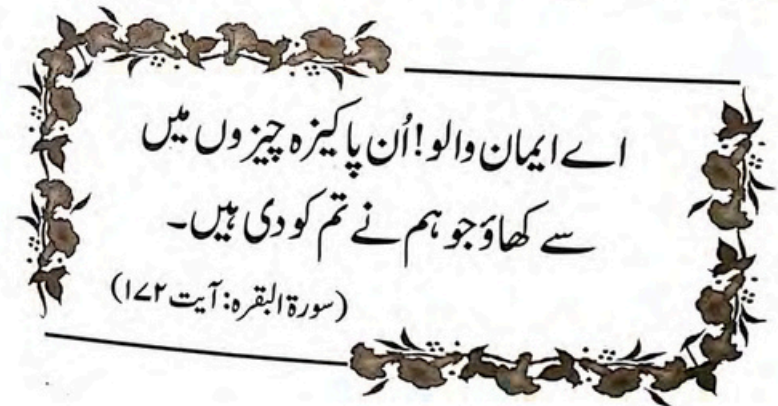 اے ایمان والو! اُن پاکیزہ چیزوں میں
سے کھاؤ جو ہم نے تم کو دی ہیں۔
(سورۃ البقرہ: آیت ۱۷۲)